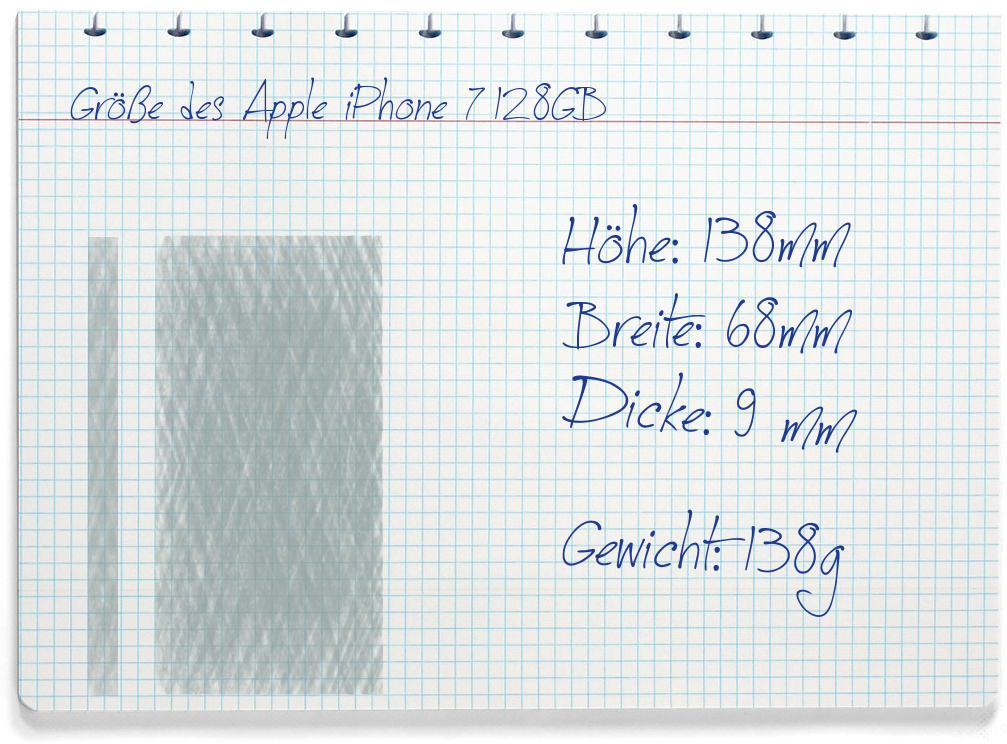 Größe des Apple iPhone 7 128GB
Höhe: 138mm
Breite: 68mm
Dicke: 9 mm
Gewicht: 138g